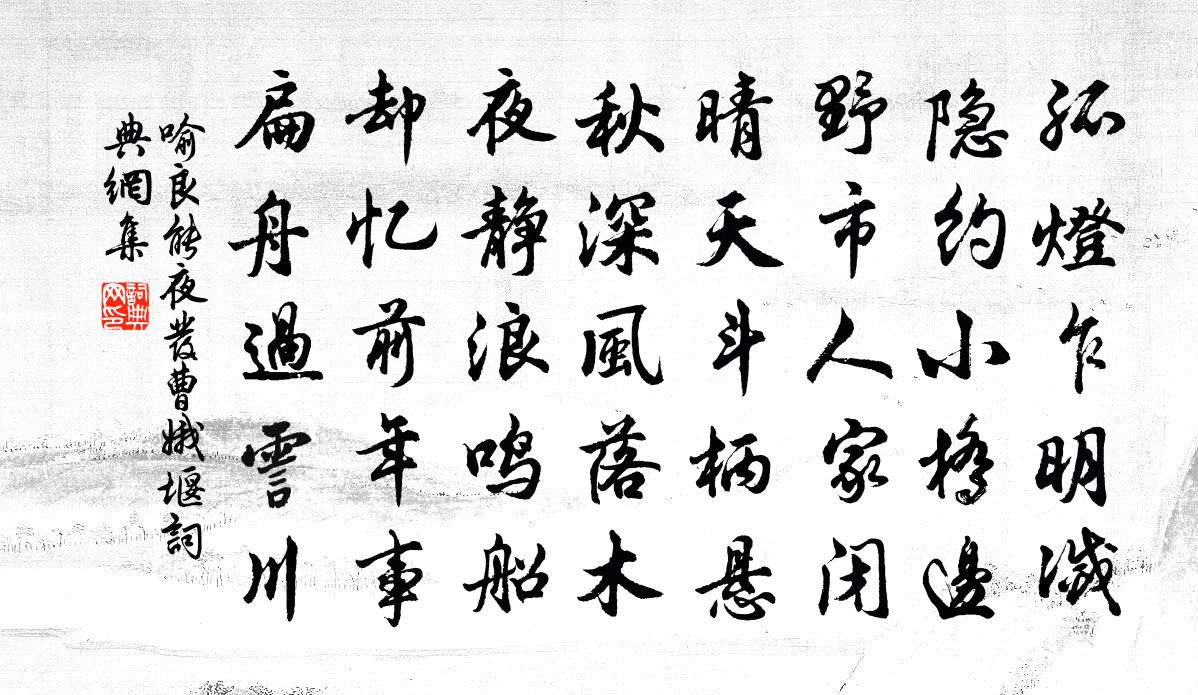 孤燈乍明滅
隐約小橋邊
野市人家闭
晴天斗柄悬
秋深風落木
夜静浪鸣船
却忆前年事
扁舟過霅川
喻良能夜發曹娥堰詞
典網集
詞典
网印